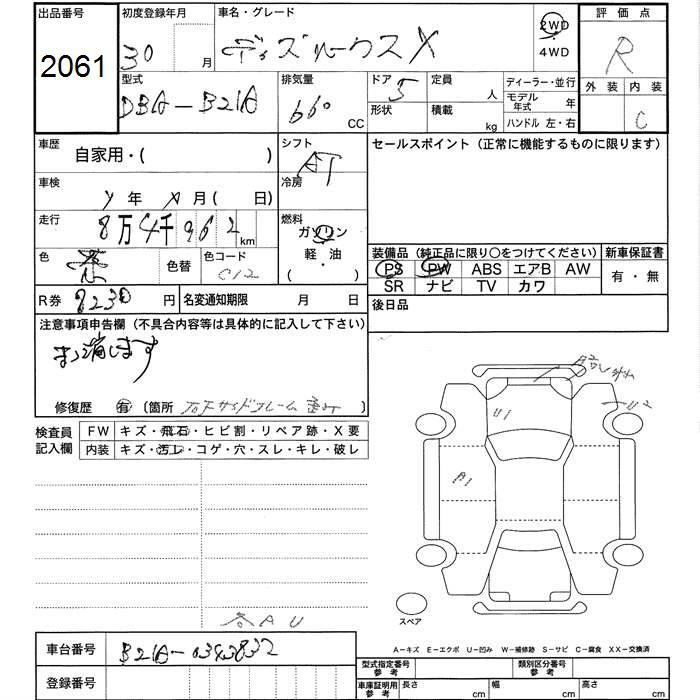 出品番号
2061
初度登録年月
30 月
車名・グレード
デイズルークス X
2WD
・
4WD
評価点
R
外装 内装
C
型式
DBA-B21A
排気量
660 CC
ドア
5
形状
定員
人
積載
kg
ディーラー・並行
モデル年式 年
ハンドル 左・右
車歴
自家用・( )
シフト
AT
車検
年 月 ( 日)
冷房
走行
8万4千962 km
燃料
ガソリン
軽・油
( )
色
色替
色コード
C12
R券
8230 円
名変通知期限 月 日
セールスポイント (正常に機能するものに限ります)
装備品 (純正品に限り○をつけてください)
新車保証書
PS PW ABS エアB AW
SR ナビ TV カワ
有・無
後日品
注意事項申告欄 (不具合内容等は具体的に記入して下さい)
まっ消します
修復歴 有 〔箇所 右Fサイドフレーム 〕
検査員
記入欄
FW キズ・飛石・ヒビ割・リペア跡・X要
内装 キズ・汚レ・コゲ・穴・スレ・キレ・破レ
各AU
U1
U2
A1
スペア
A-キズ E-エクボ U-凹み W-補修跡 S-サビ C-腐食 XX-交換済
車台番号
B21A-0343832
登録番号
型式指定番号
参考
類別区分番号
参考
車庫証明用
参考
長さ cm
幅 cm
高さ cm